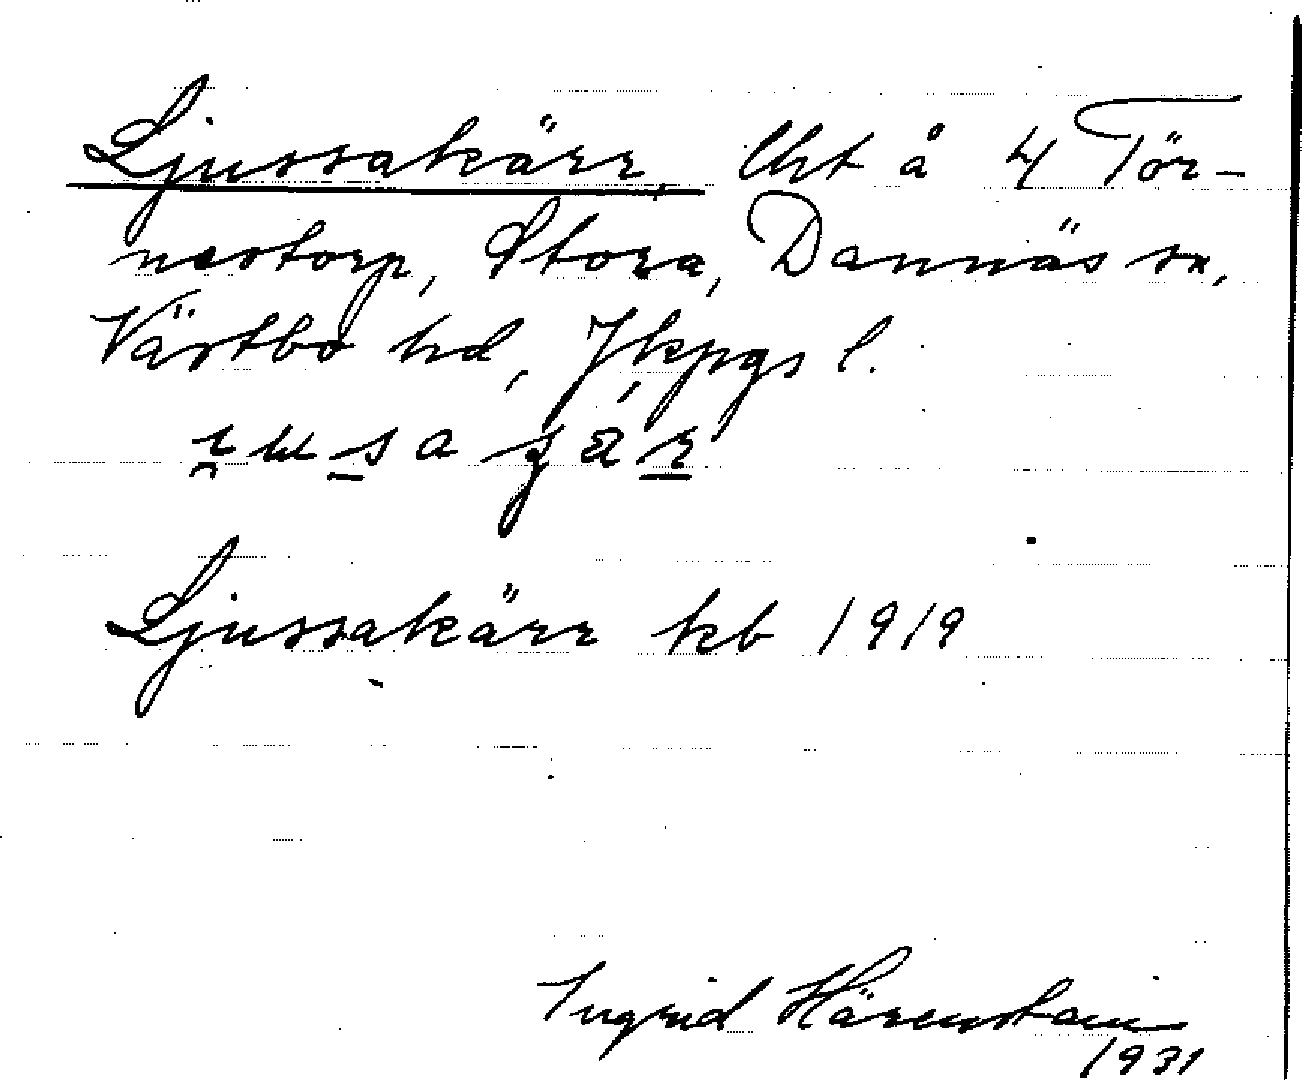 Ljussakärr, lht å 4 Tör-
nestorp, Stora, Dannäs sn,
Västbo hd, Jkpgs l.
Ljussakärr kb 1919
Ingrid Härenstam
1931